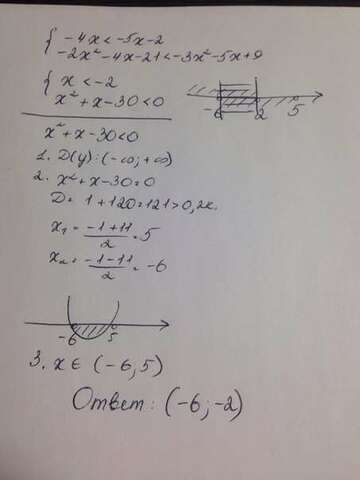 { -4x < -5x-2
-2x²-4x-21 < -3x²-5x+9
{ x < -2
x²+x-30<0
-6 2 5
x²+x-30<0
1. D(y): (-∞; +∞)
2. x²+x-30=0
D= 1+120=121>0, 2к.
x₁ = (-1+11)/2 = 5
x₂ = (-1-11)/2 = -6
-6 5
3. x ∈ (-6; 5)
Ответ: (-6; -2)